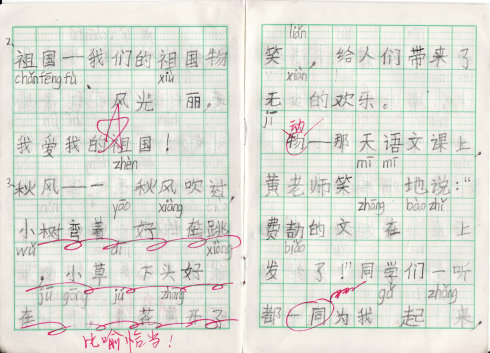 2.
祖国—我们的祖国物
chǎn fēng fù xiù
、风光 丽。
我爱我的祖国！
zhèn
3.
秋风—— 秋风吹过，
yāo xiàng
小树弯着 好 在跳
wǔ ǎi xiàng
，小草 下头好
jū gōng jú zhāng
在 花
比喻恰当！
liǎn
笑 ，给人们带来了
xiàn
无 的欢乐。
jī
动
——那天语文课上，
mī mī
黄老师笑 地说：“
zhāng bào zhǐ
费 的文 在 上
biǎo
发 了！”同学们一听
gǔ zhǎng
都一同为我 起 来